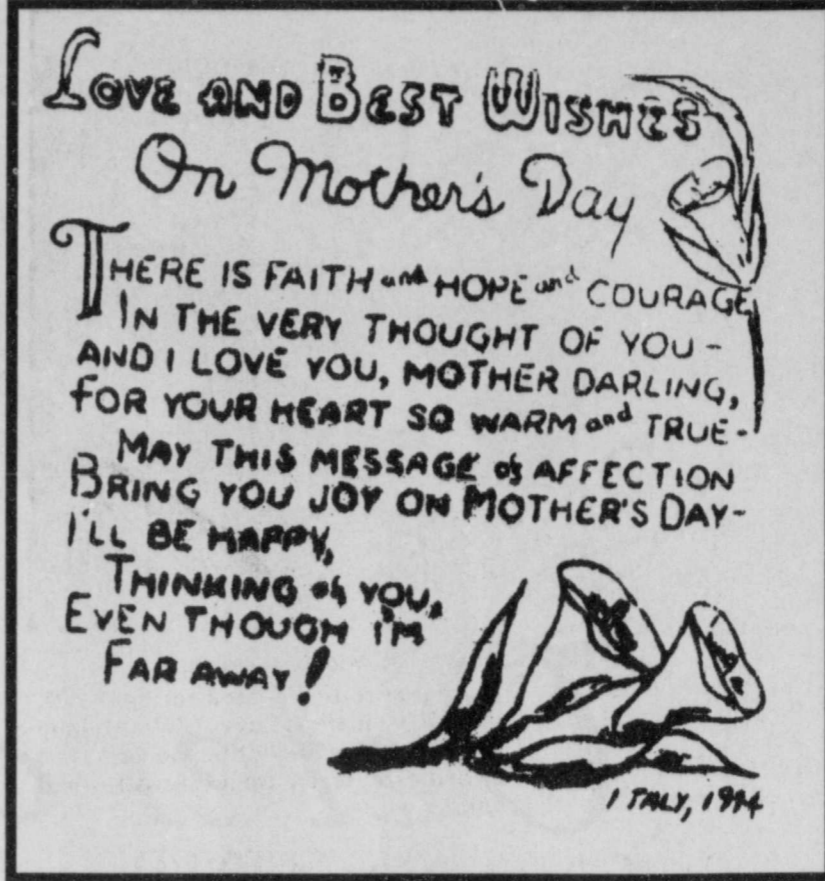 LOVE AND BEST WISHES
On Mother's Day
THERE IS FAITH and HOPE and COURAGE
IN THE VERY THOUGHT OF YOU -
AND I LOVE YOU, MOTHER DARLING,
FOR YOUR HEART SO WARM and TRUE -
MAY THIS MESSAGE of AFFECTION
BRING YOU JOY ON MOTHER'S DAY -
I'LL BE HAPPY,
THINKING of YOU,
EVEN THOUGH I'M
FAR AWAY!
ITALY, 1944